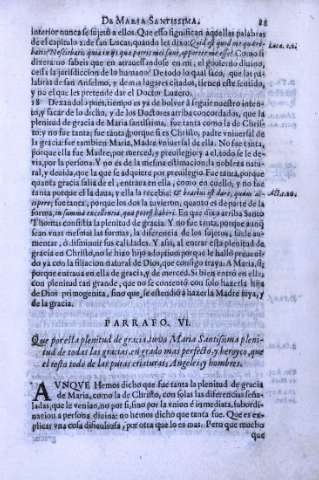 DE MARIA SANTISSIMA. 88
interior nunca se sujetó a ellos. Que esso significan aquellas palabras
del capitulo 2. de san Lucas, quando les dixo: Quid est quod me quære-
batis? Nesciebatis quia in ijs quæ patris mei sunt, oportet me esse? Como si
Luca. 2. c.
dixera: no sabeis que en atrauessandose en mi, el gouierno diuino,
cessa la jurisdiccion de lo humano? De todo lo qual saco, que las pa-
labras de san Anselmo, y demas lugares citados, tienen este sentido,
y no el que les pretende dar el Doctor Lutero.
18 Dexando pues, tiempo es ya de boluer â seguir nuestro inten-
to, y sacar de lo dicho, y de los Doctores arriba concordados, que la
plenitud de gracia de Maria santissima, fue tanta como la de Christo
to: y no fue tanta; fue tanta, porque si es Christo, padre vniuersal de
la gracia fue tambien Maria, Madre vniuersal de ella. No fue tanta,
porque ella fue Madre, por merced, y preuilegio; y a el, todo se le de-
via, por la persona. Y no es de la mesma estimacion la nobleza natu-
ral, y deuida, que la que se adquiere por preuilegio. Fue tanta, porque
quanta gracia salia de el, entraua en ella, como en cuello, y no fue
tanta porque el la daua, y ella la recebia: & beatius est dare, quam ac-
Act. 20.
cipere; fue tanta, porque los dos la tuuieron, quanto es de parte de la
forma, in summa excellentia, qua potest haberi. En que dixo arriba Santo
Thomas consistia la plenitud de gracia. Y no fue tanta, porque aunq̃
sean vnas mesmas las formas, la diferencia de los sujetos, suele au-
mentar, ó disminuir sus calidades. Y assi, al entrar esta plenitud de
gracia en Christo, no le hizo hijo adoptiuo: porque le halló preueni-
do ya con la filiacion natural de Dios, que consigo traya. A Maria, si;
porque entraua en ella de gracia, y de merced. Si bien, entró en ella,
con plenitud tan grande, que no se contentò con solo hazerla hija
de Dios primogenita, sino que, se estendió â hazerla Madre suya, y
de la gracia.
PARRAFO. VI.
Que por esta plenitud de gracia, tuuo Maria Santissima pleni-
tud de todas las gracias, en grado mas perfecto, y heroyco, que
el resto todo de las puras criaturas, Angeles, y hombres.
AVNQVE Hemos dicho que fue tanta la plenitud de gracia
de Maria, como la de Christo, con solas las diferencias seña-
ladas, que le venian, no por si, sino por la vnion é inmediata, subordi-
nation a persona diuina: no hemos dicho que tanta fue. Que es ex-
plicar vna cosa dificultosa, por otra que lo es mas. Pero que mucho
que